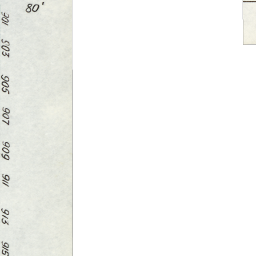 80'
901
903
905
907
909
911
913
915